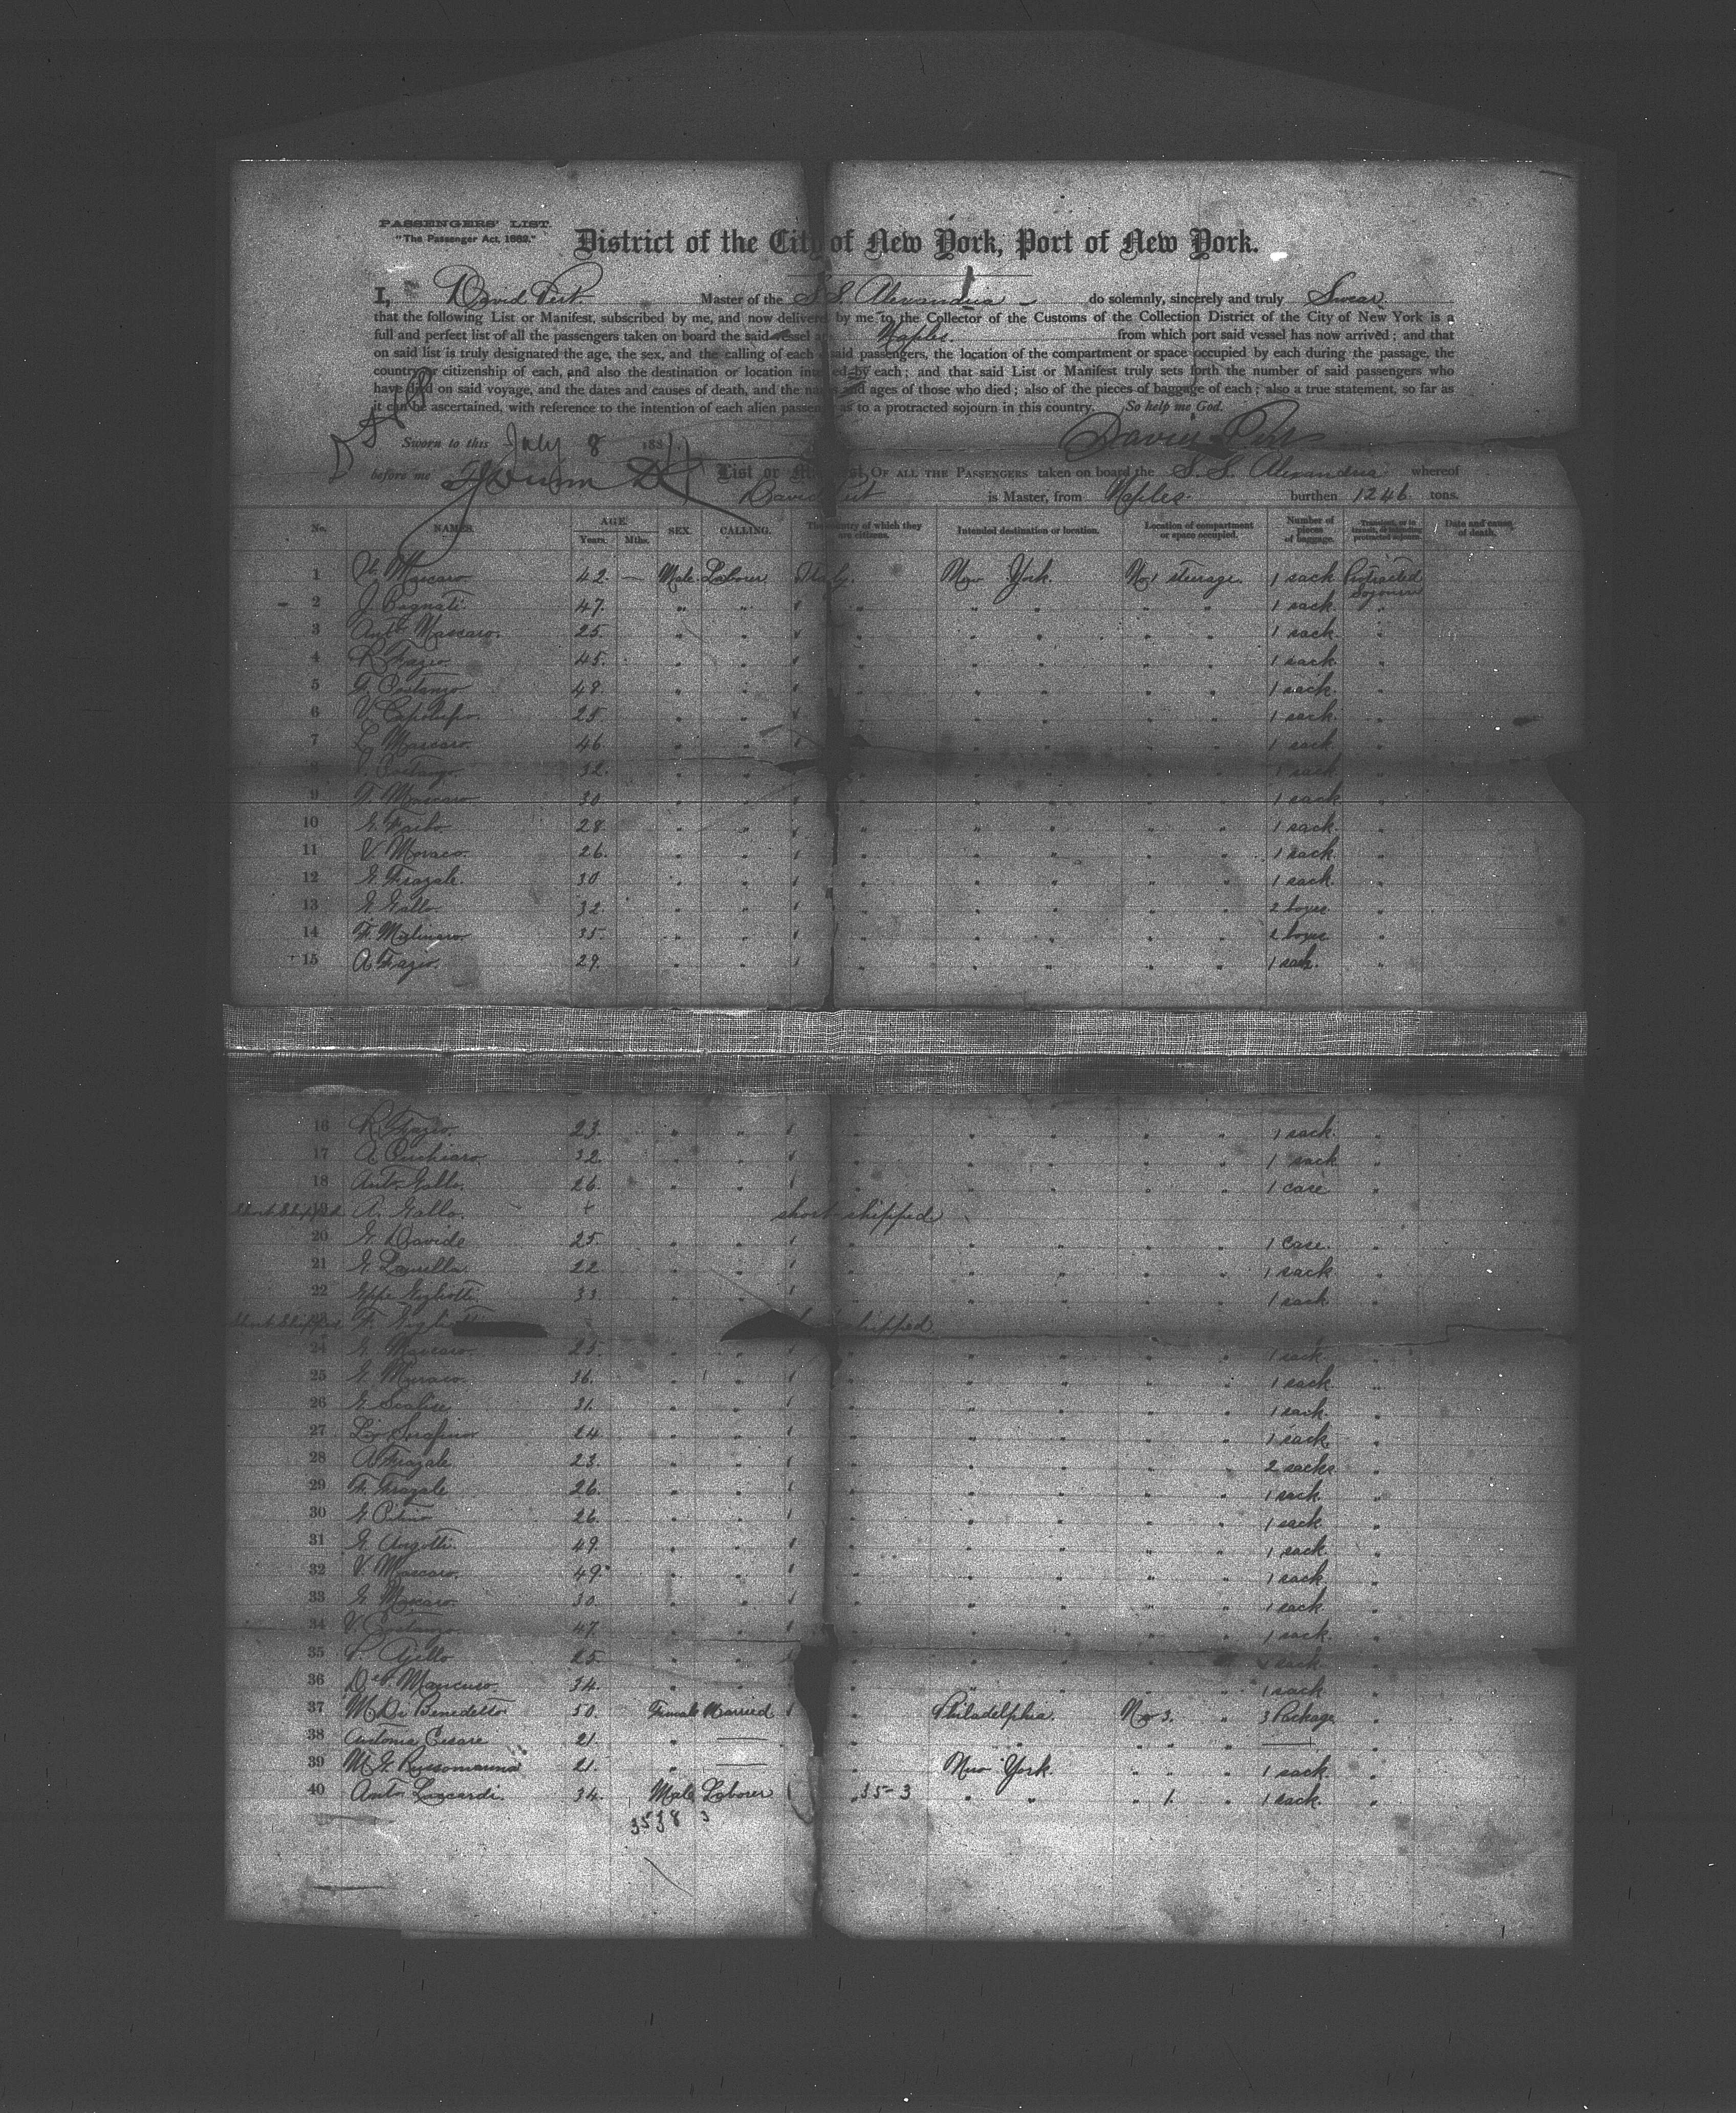 PASSENGERS' LIST.
"The Passenger Act, 1882."
District of the City of New York, Port of New York.
I, David Master of the S.S. Alexandria do solemnly, sincerely and truly Swear
that the following List or Manifest, subscribed by me, and now delivered by me to the Collector of the Customs of the Collection District of the City of New York is a
full and perfect list of all the passengers taken on board the said vessel at Naples. from which port said vessel has now arrived; and that
on said list is truly designated the age, the sex, and the calling of each said passengers, the location of the compartment or space occupied by each during the passage, the
country or citizenship of each, and also the destination or location intended by each; and that said List or Manifest truly sets forth the number of said passengers who
have died on said voyage, and the dates and causes of death, and the names and ages of those who died; also of the pieces of baggage of each; also a true statement, so far as
it can be ascertained, with reference to the intention of each alien passenger as to a protracted sojourn in this country. So help me God.
Sworn to this July 8 188 David
before me List or Manifest, OF ALL THE PASSENGERS taken on board the S.S. Alexandria whereof
David is Master, from Naples. burthen 1246 tons.
No. NAMES. AGE Years. Mths. SEX. CALLING. The country of which they are citizens. Intended destination or location. Location of compartment or space occupied. Number of pieces of baggage. Transient, or in transit, or intending protracted sojourn. Date and cause of death.
1 Mascaro 42 — Male Laborer Italy. New York. No 1 steerage. 1 sack Protracted Sojourn
2 J. Bagnati 47. " " " " " " " 1 sack. "
3 Anto Mascaro. 25. " " " " " " " 1 sack. "
4 R Frazio 45. " " " " " " " 1 sack. "
5 F. Costanzo 48. " " " " " " " 1 sack. "
6 V. Capolupo. 25. " " " " " " " 1 sack. "
7 Mascaro. 46. " " " " " " " 1 sack. "
8 Costanzo 32. " " " " " " " 1 sack "
9 F. Mascaro 30 " " " " " " " 1 sack "
10 28 " " " " " " " 1 sack. "
11 V. Moraco. 26. " " " " " " " 1 sack. "
12 G. Frazale. 30 " " " " " " " 1 sack. "
13 G. Gallo. 32. " " " " " " " 2 boxes "
14 F. Molinaro. 35. " " " " " " " 2 boxes "
15 A. Frazio. 29. " " " " " " " 1 sack. "
16 R. Frazio. 23. " " " " " " " 1 sack. "
17 A. 32. " " " " " " " 1 sack "
18 Anto. Gallo. 26. " " " " " " " 1 case "
Short Shipped 19 A. Gallo. short shipped
20 G. Davide 25. " " " " " " " 1 case. "
21 G. 22 " " " " " " " 1 sack "
22 Gppe Gigliotti. 33 " " " " " " " 1 sack. "
Short Shipped F. shipped
24 G. Mascaro. 25. " " " " " " " 1 sack. "
25 G. Muraco. 36. " " " " " " " 1 sack "
26 G Scalise 31. " " " " " " " 1 sack. "
27 Serafino 24 " " " " " " " 1 sack. "
28 A. Frazale 23. " " " " " " " 2 sacks "
29 F. Frazale 26. " " " " " " " 1 sack. "
30 G. 26. " " " " " " " 1 sack. "
31 G. Angotti 49. " " " " " " " 1 sack. "
32 V. Mascaro. 49. " " " " " " " 1 sack. "
33 G. Mascaro. 30. " " " " " " " 1 sack. "
34 V. Costanzo. 47. " " " " " " " 1 sack. "
35 25. " " " " " " " sack. "
36 Mancuso. 34. " " " " " " " 1 sack "
37 M Di Benedetto 50. Female Married " Philadelphia. No 3. " 3 Package "
38 Antonia Cesare 21. " — " " " " — "
39 M. G. Russomanna 21. " — " New York. " " 1 sack. "
40 Anto. 34. Male Laborer " 35-3 " " " 1. " 1 sack. "
3538 3